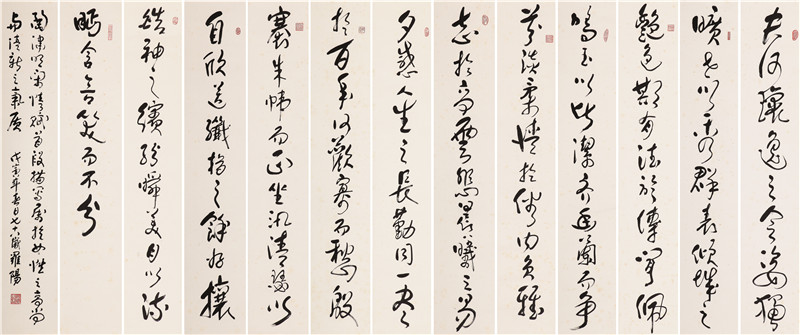 夫何瓌逸之令姿獨
曠世以秀群表傾城之
豔色期有德於傳聞佩
鳴玉以比潔齊幽蘭而爭
芬淡柔情於俗內負雅
志於高雲悲晨曦之易
夕感人生之長勤同一盡
於百年何歡寡而愁殷
褰朱幃而正坐汎清瑟以
自欣送纖指之餘好攘
皓袖之繽紛瞬美目以流
眄含言笑而不分
陶淵明閑情賦首段描寫屬於女性之高尚
與清新之氣質 戊寅年春日七六歲雍陽